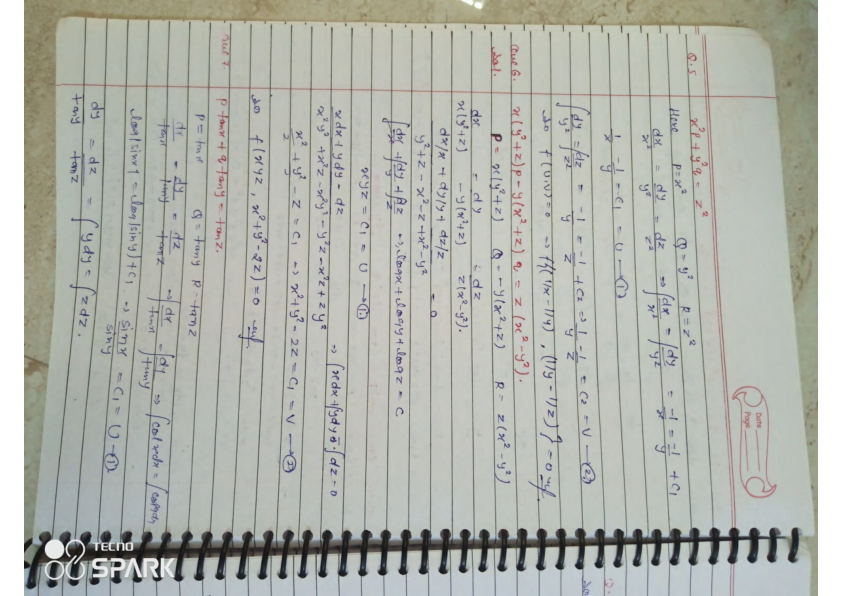 Date
Page
Q.5 x²p + y²q = z²
Here p = x² Q = y² R = z²
dx/x² = dy/y² = dz/z² ⇒ ∫dx/x² = ∫dy/y² = -1/x = -1/y + C₁
1/x - 1/y = C₁ = U —①
∫dy/y² = ∫dz/z² = -1/y = -1/z + C₂ ⇒ 1/y - 1/z = C₂ = V —②
so f(U,V) = 0 ⇒ f{(1/x - 1/y), (1/y - 1/z)} = 0
Que 6. x(y²+z)p - y(x²+z)q = z(x²-y²).
Sol. P = x(y²+z) Q = -y(x²+z) R = z(x²-y²)
dx/x(y²+z) = dy/-y(x²+z) = dz/z(x²-y²).
dx/x + dy/y + dz/z / y²+z - x²-z + x²-y² = 0
∫dx/x + ∫dy/y + ∫dz/z ⇒ log x + log y + log z = C
xyz = C₁ = U —①
xdx + ydy - dz / x²y² + x²z - x²y² - y²z - x²z + zy² ⇒ ∫xdx + ∫ydy - ∫dz = 0
x²/2 + y²/2 - z = C₁ ⇒ x² + y² - 2z = C₁ = V —②
so f(xyz, x²+y²-2z) = 0
Que 7. p tanx + q tany = tanz.
P = tanx Q = tany R = tanz
dx/tanx = dy/tany = dz/tanz ⇒ ∫dx/tanx = ∫dy/tany ⇒ ∫cotxdx = ∫cotydy
log(sinx) = log(siny) + C₁ ⇒ sinx/siny = C₁ = U —①
dy/tany = dz/tanz = ∫ydy = ∫zdz.
TECNO
SPARK